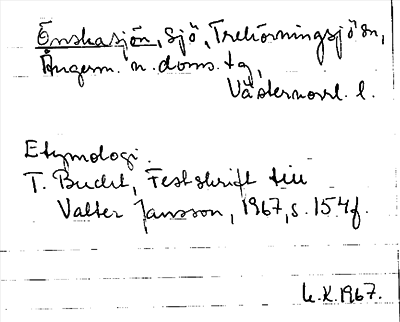 Önskasjön, sjö, Trehörningsjö sn,
Ångerm. n. doms. tg,
Västernorrl. l.
Etymologi.
T. Bucht, Festskrift till
Valter Jansson, 1967, s. 154f.
U.K. 1967.